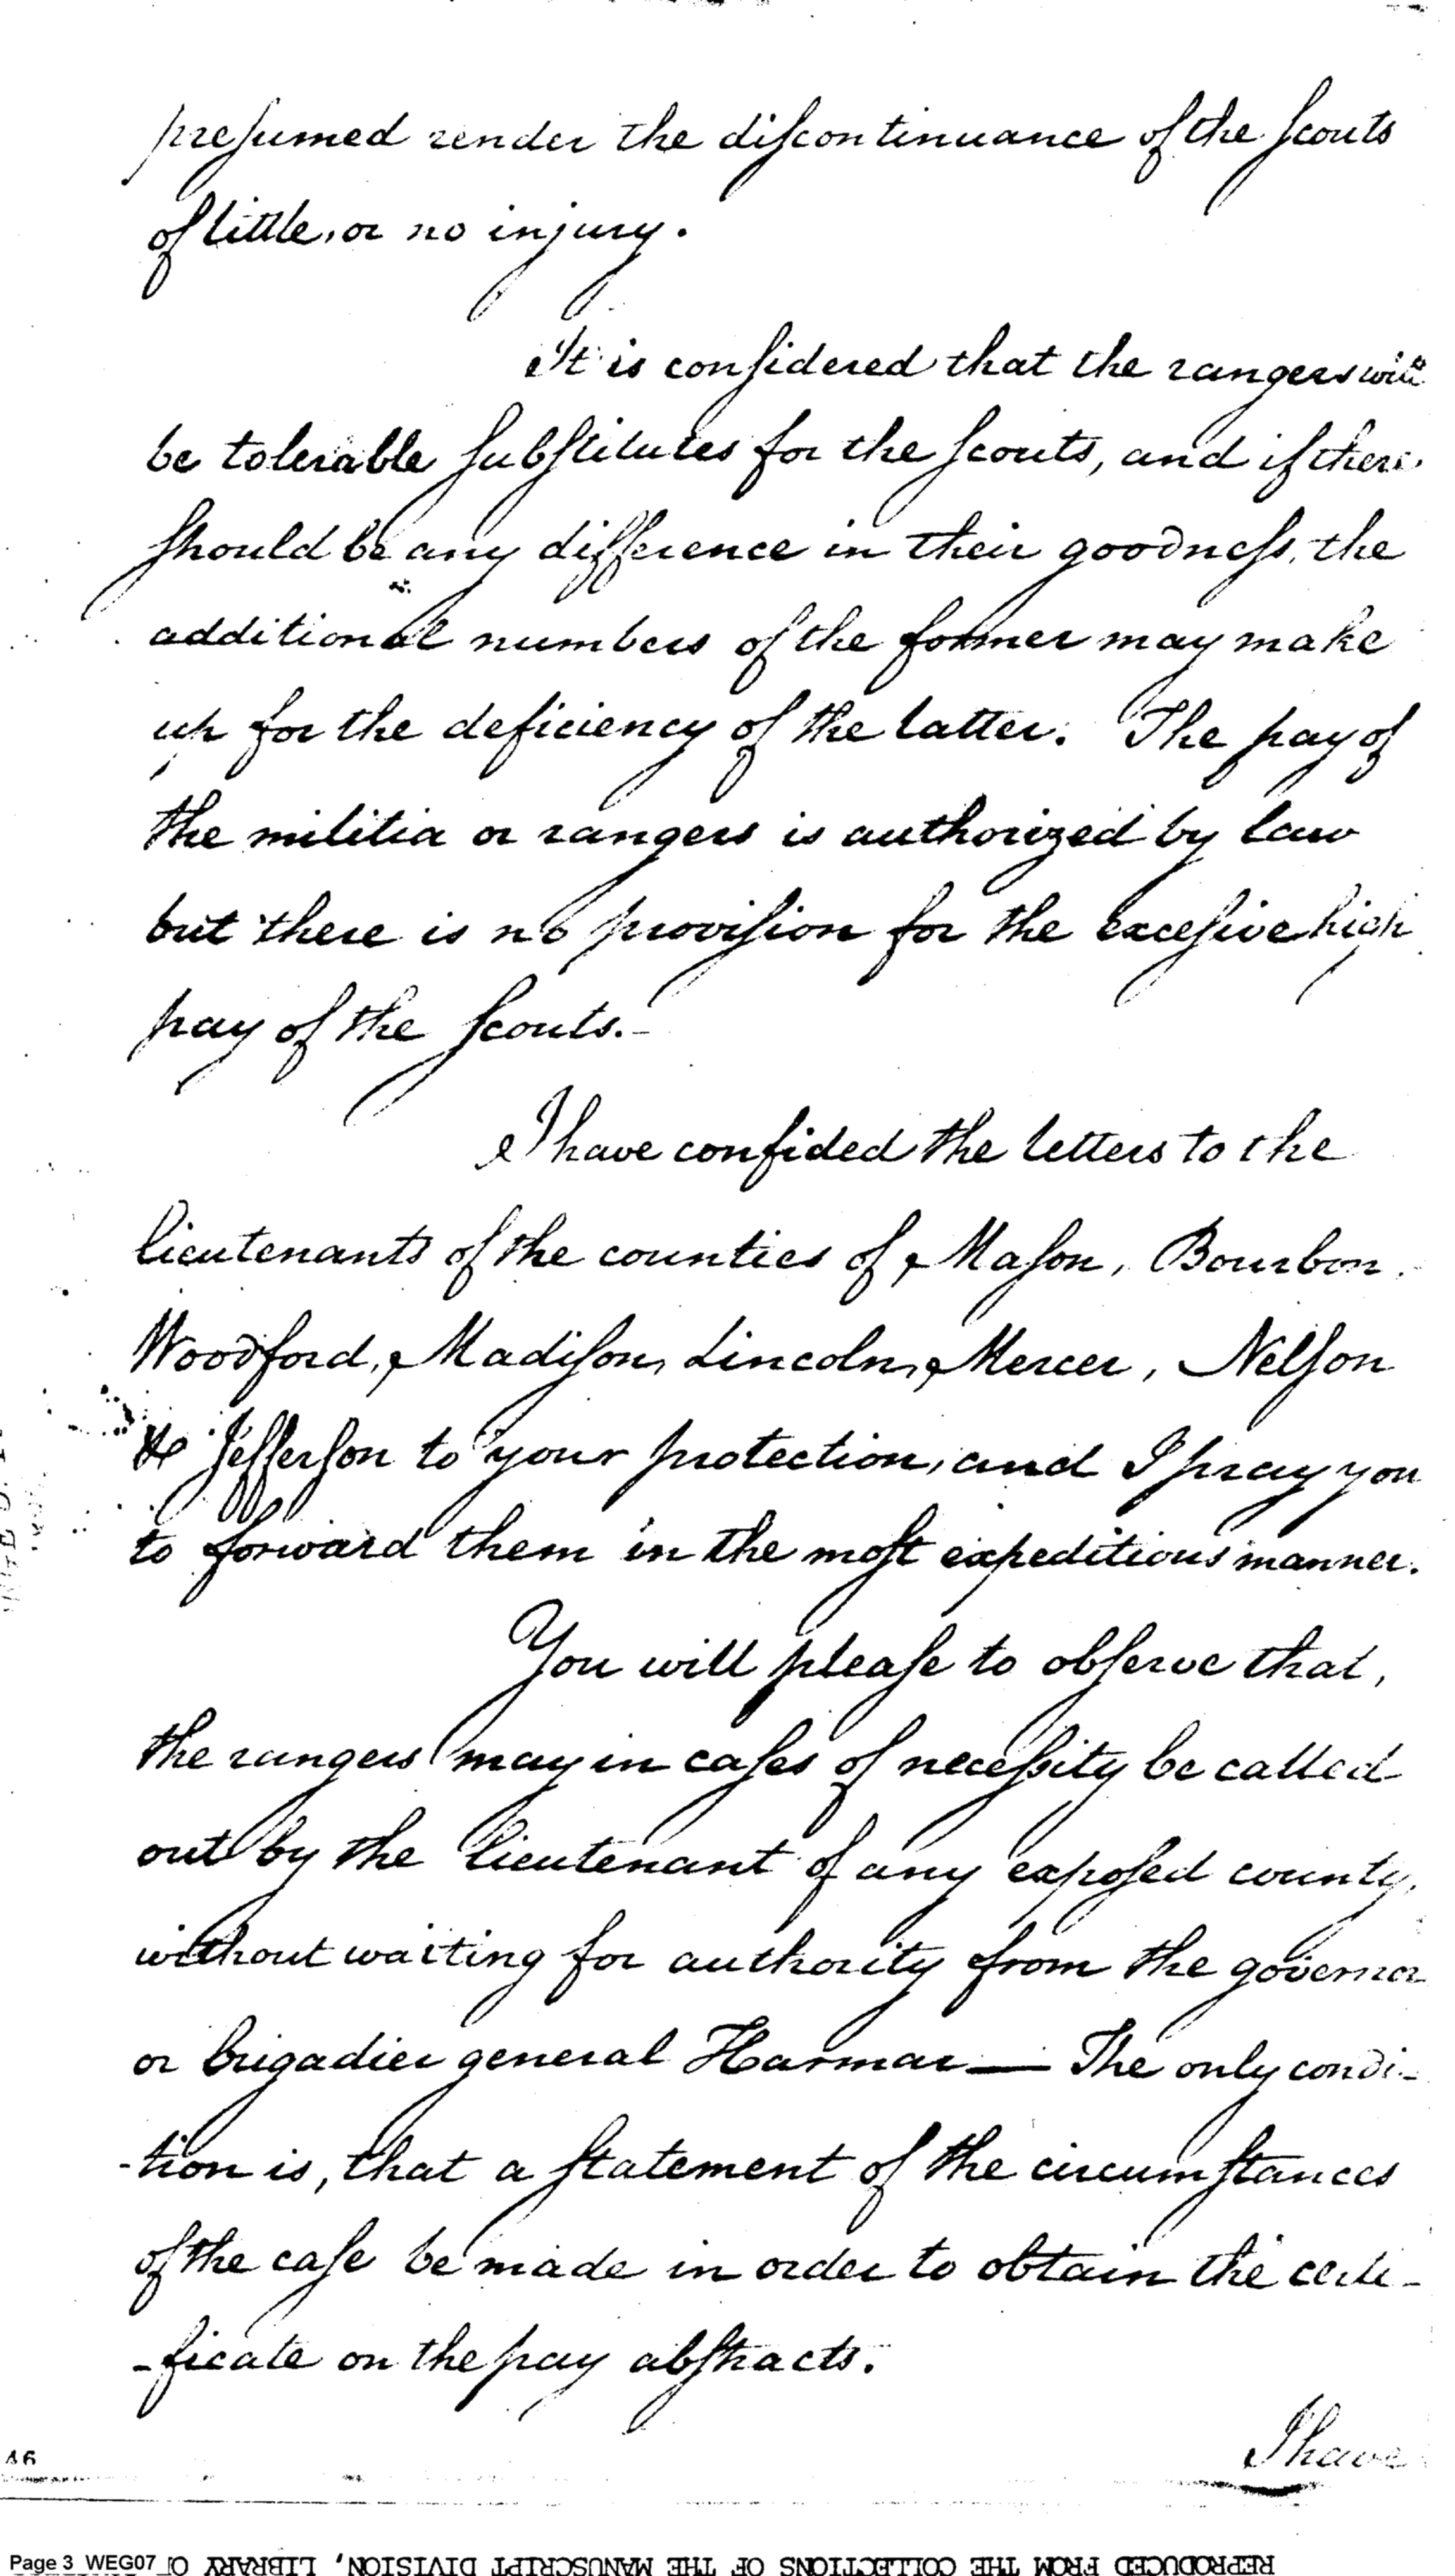 presumed render the discontinuance of the scouts
of little, or no injury.
It is considered that the rangers will
be tolerable substitutes for the scouts, and if there
should be any difference in their goodness, the
additional numbers of the former may make
up for the deficiency of the latter. The pay of
the militia or rangers is authorized by law
but there is no provision for the excesive high
pay of the scouts.-
I have confided the letters to the
lieutenants of the counties of Mason, Bourbon,
Woodford, Madison, Lincoln, Mercer, Nelson
& Jefferson to your protection, and I pray you
to forward them in the most expeditious manner.
You will please to observe that,
the rangers may in cases of necessity be called
out by the lieutenant of any exposed county,
without waiting for authority from the governor
or brigadier general Harmar — The only condi-
-tion is, that a statement of the circumstances
of the case be made in order to obtain the certi-
-ficate on the pay abstracts.
I have
46
Page 3 WEG07
REPRODUCED FROM THE COLLECTIONS OF THE MANUSCRIPT DIVISION, LIBRARY O